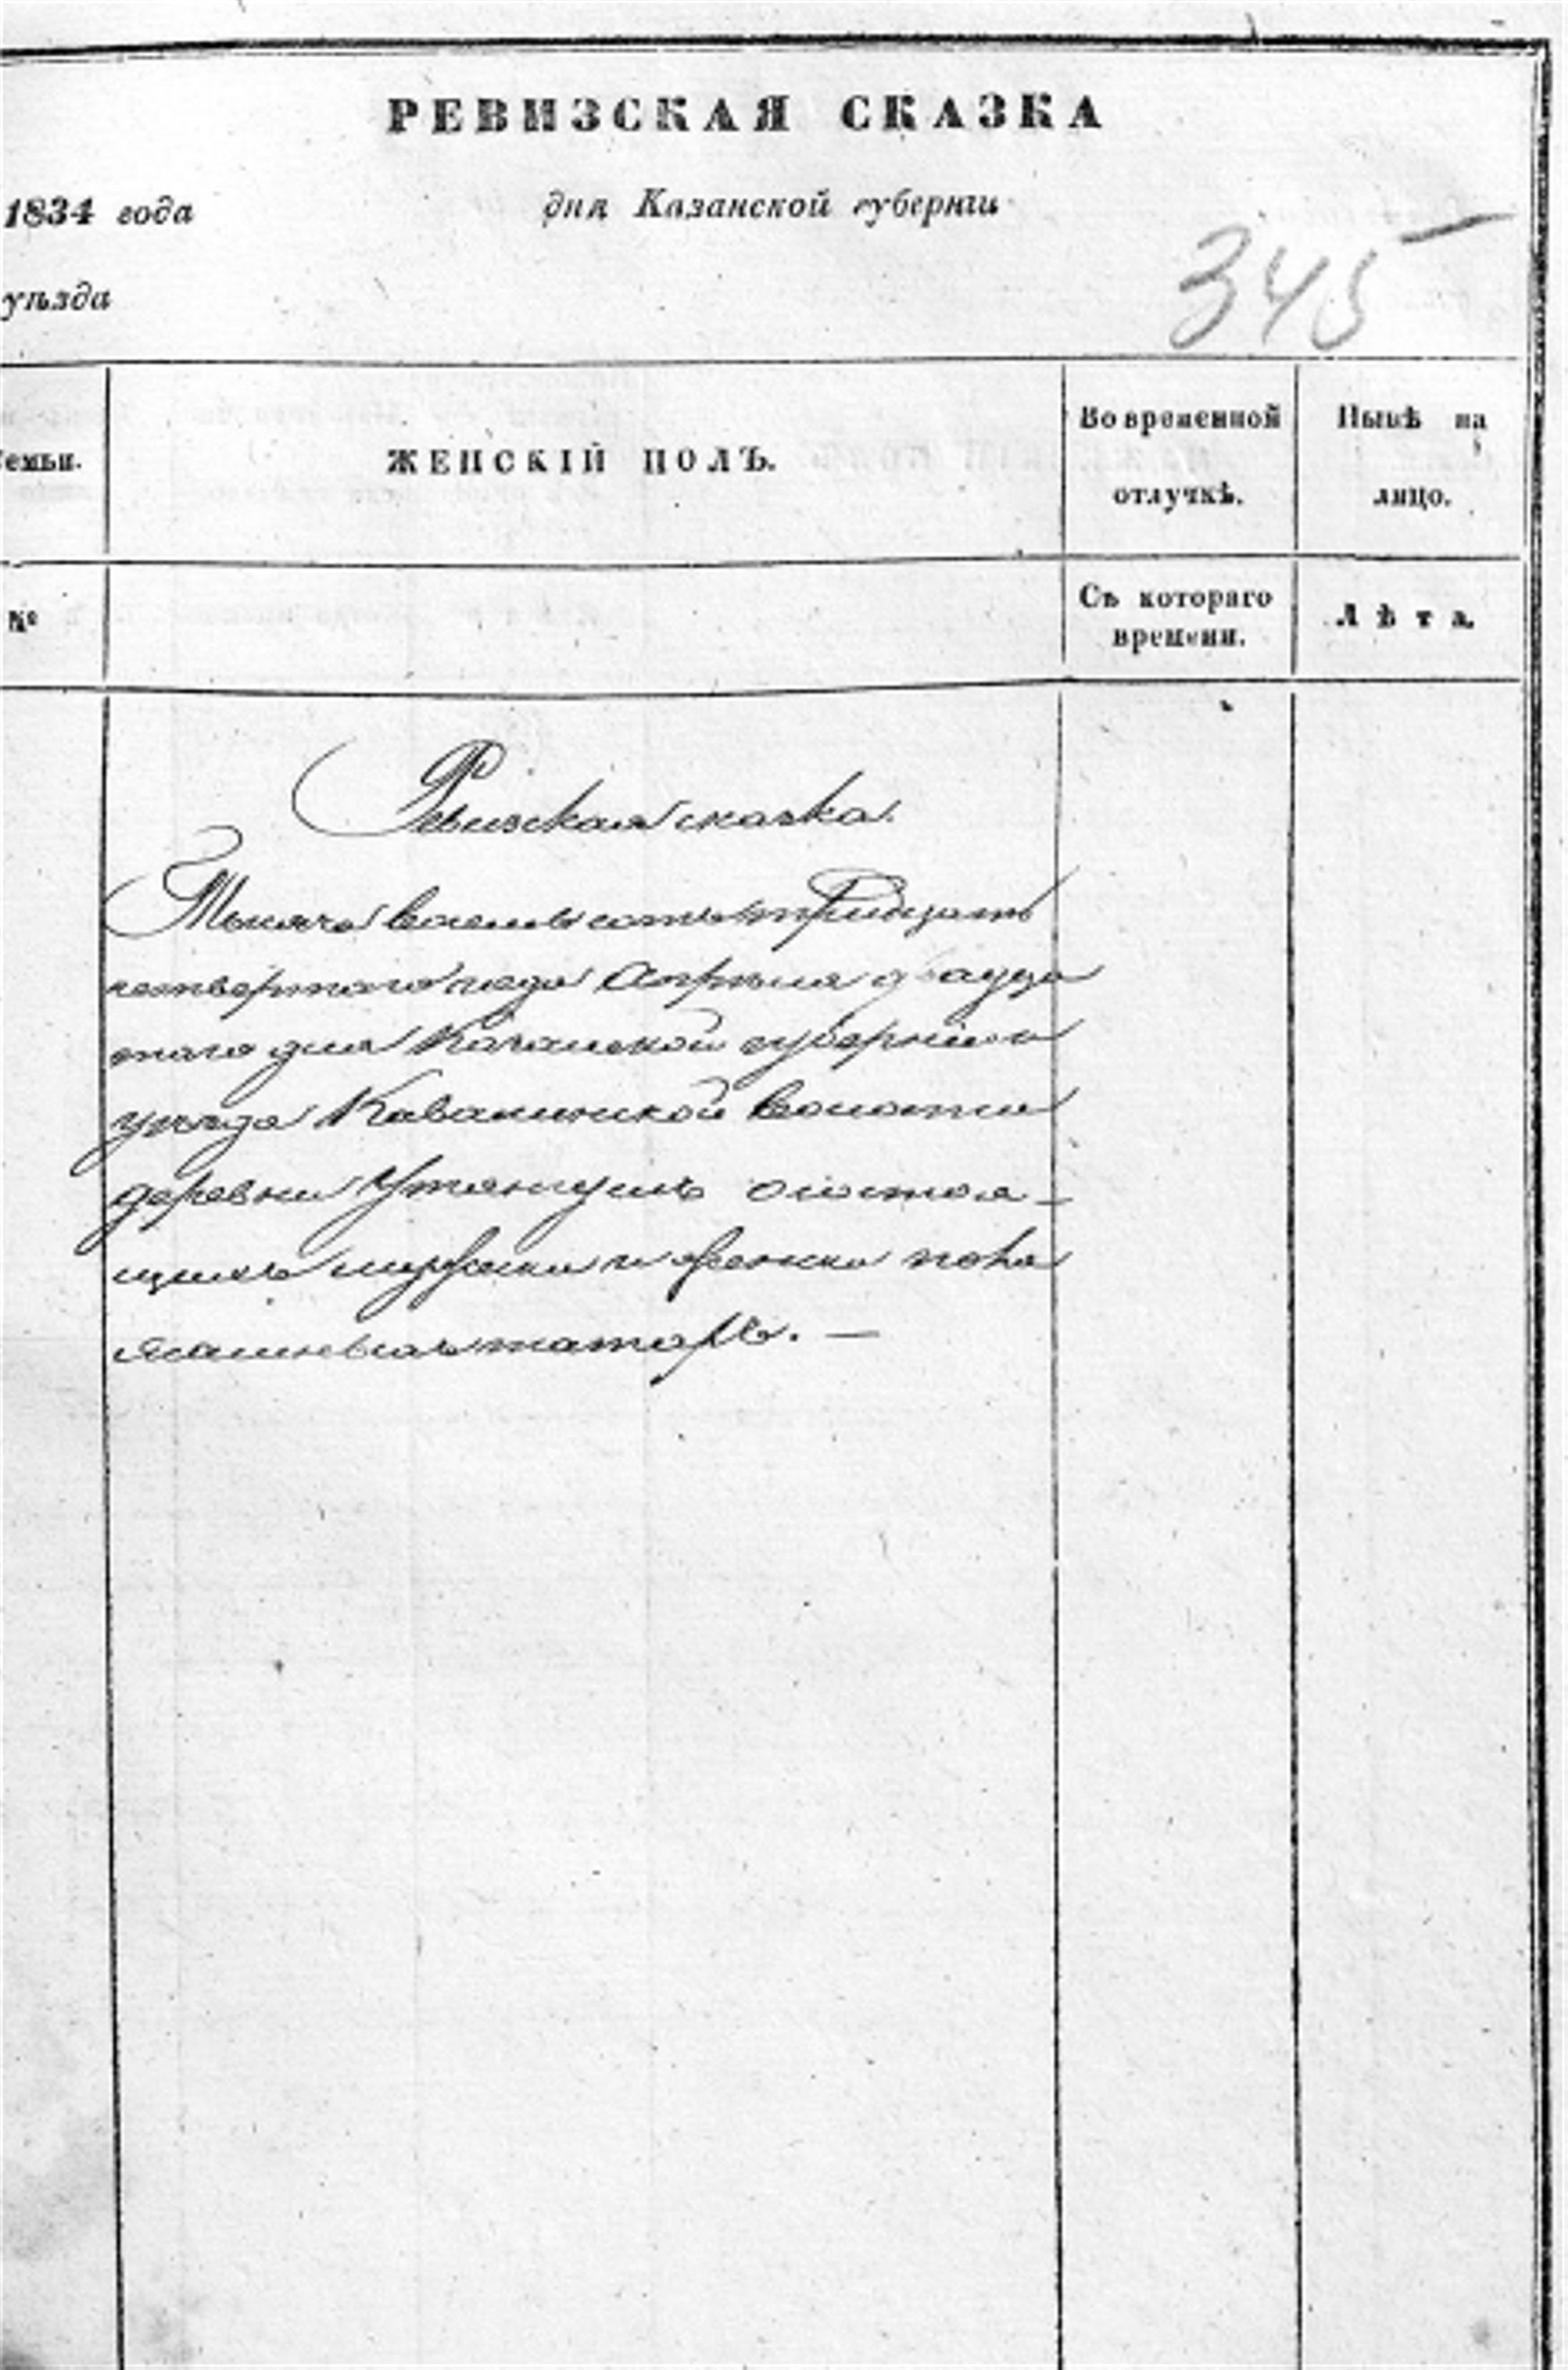 РЕВИЗСКАЯ СКАЗКА
1834 года дня Казанской губернiи
уѣзда
345
Семьи. ЖЕНСКIЙ ПОЛЪ. Во временной отлучкѣ. Нынѣ на лицо.
№ Съ котораго времени. Лѣта.
Ревизская сказка.
Тысяча восемьсотъ тридцать
четвертаго года Апрѣля двадца
таго дня Казанской губернiи и
уѣзда Кавалинской волости
деревни Утянгушъ о состоя-
щихъ мужска и женска пола
ясашныхъ татаръ. —